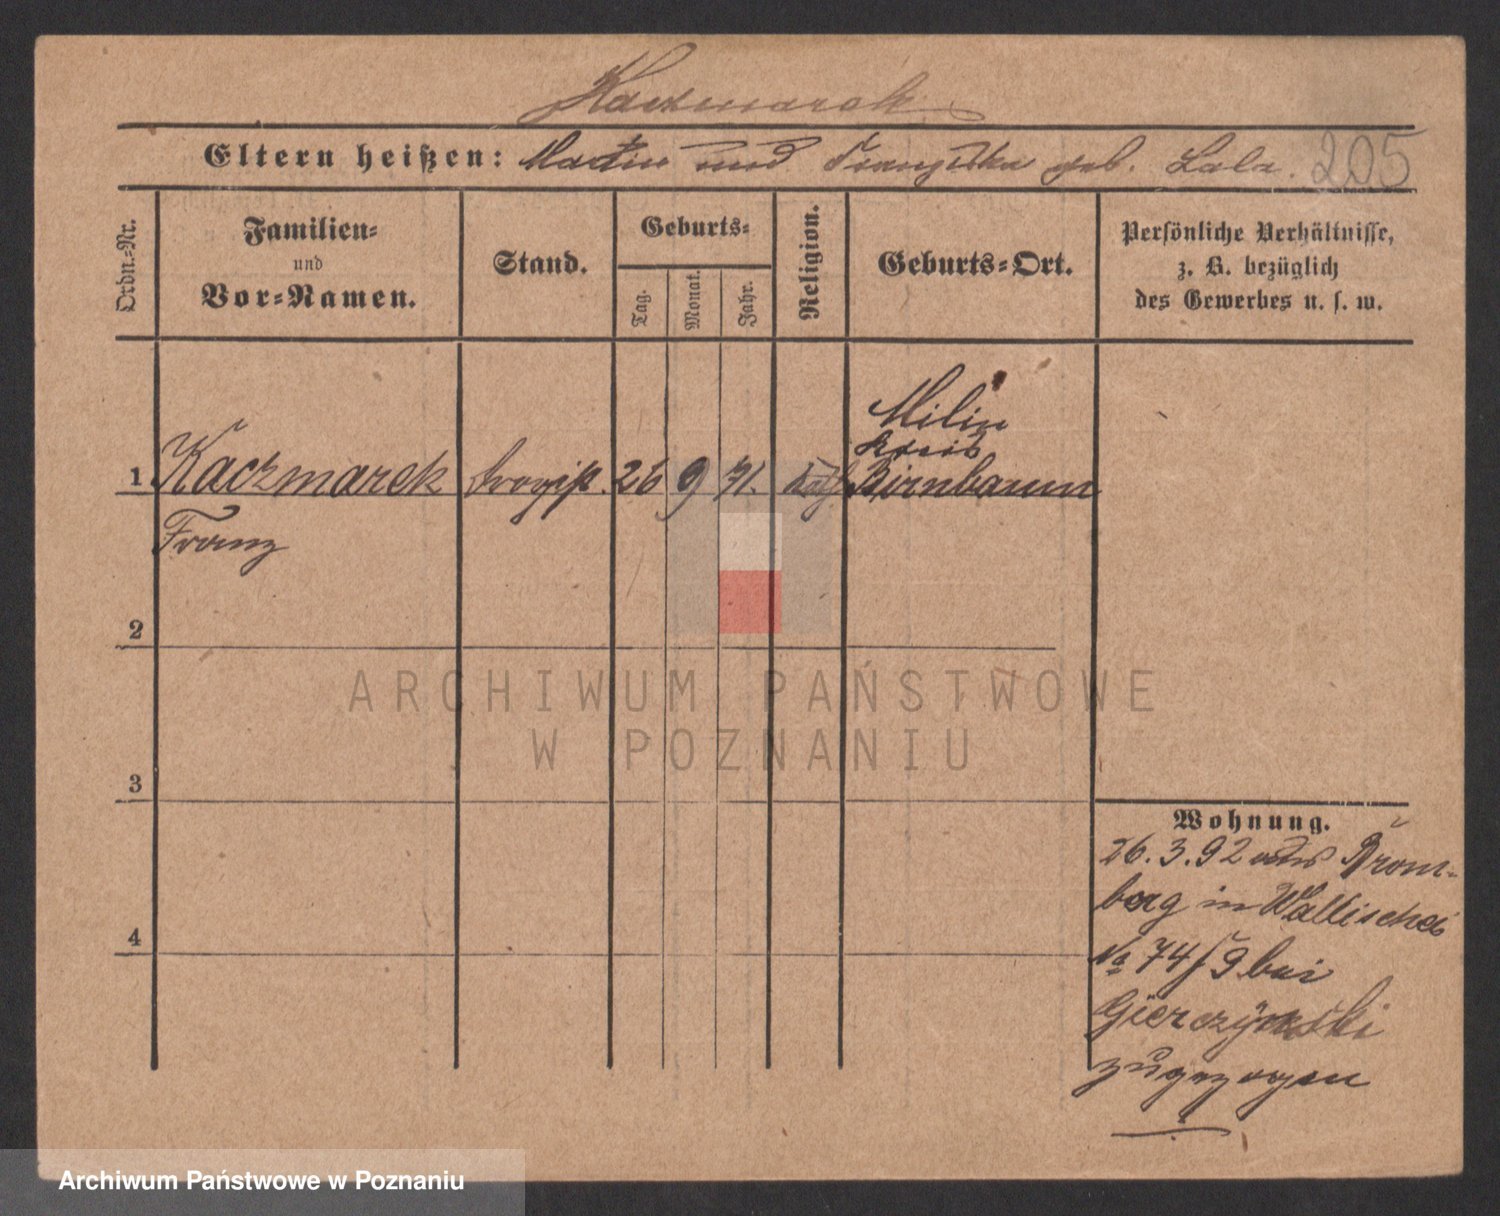 Kaczmarek
Eltern heißen: Martin und Franziska geb. Lala. 205
Ordn.-Nr.
Familien- und Vor-Namen.
Stand.
Geburts-
Tag.
Monat.
Jahr.
Religion.
Geburts-Ort.
Persönliche Verhältnisse,
z. B. bezüglich
des Gewerbes u. s. w.
Milin
Kreis
1 Kaczmarek Drogist. 26 9 71. kath Birnbaum
Franz
2
3
4
Wohnung.
26.3.92 aus Brom-
berg in Wallischei
No 74/9 bei
Gierczynski
zugezogen
ARCHIWUM PAŃSTWOWE
W POZNANIU
Archiwum Państwowe w Poznaniu